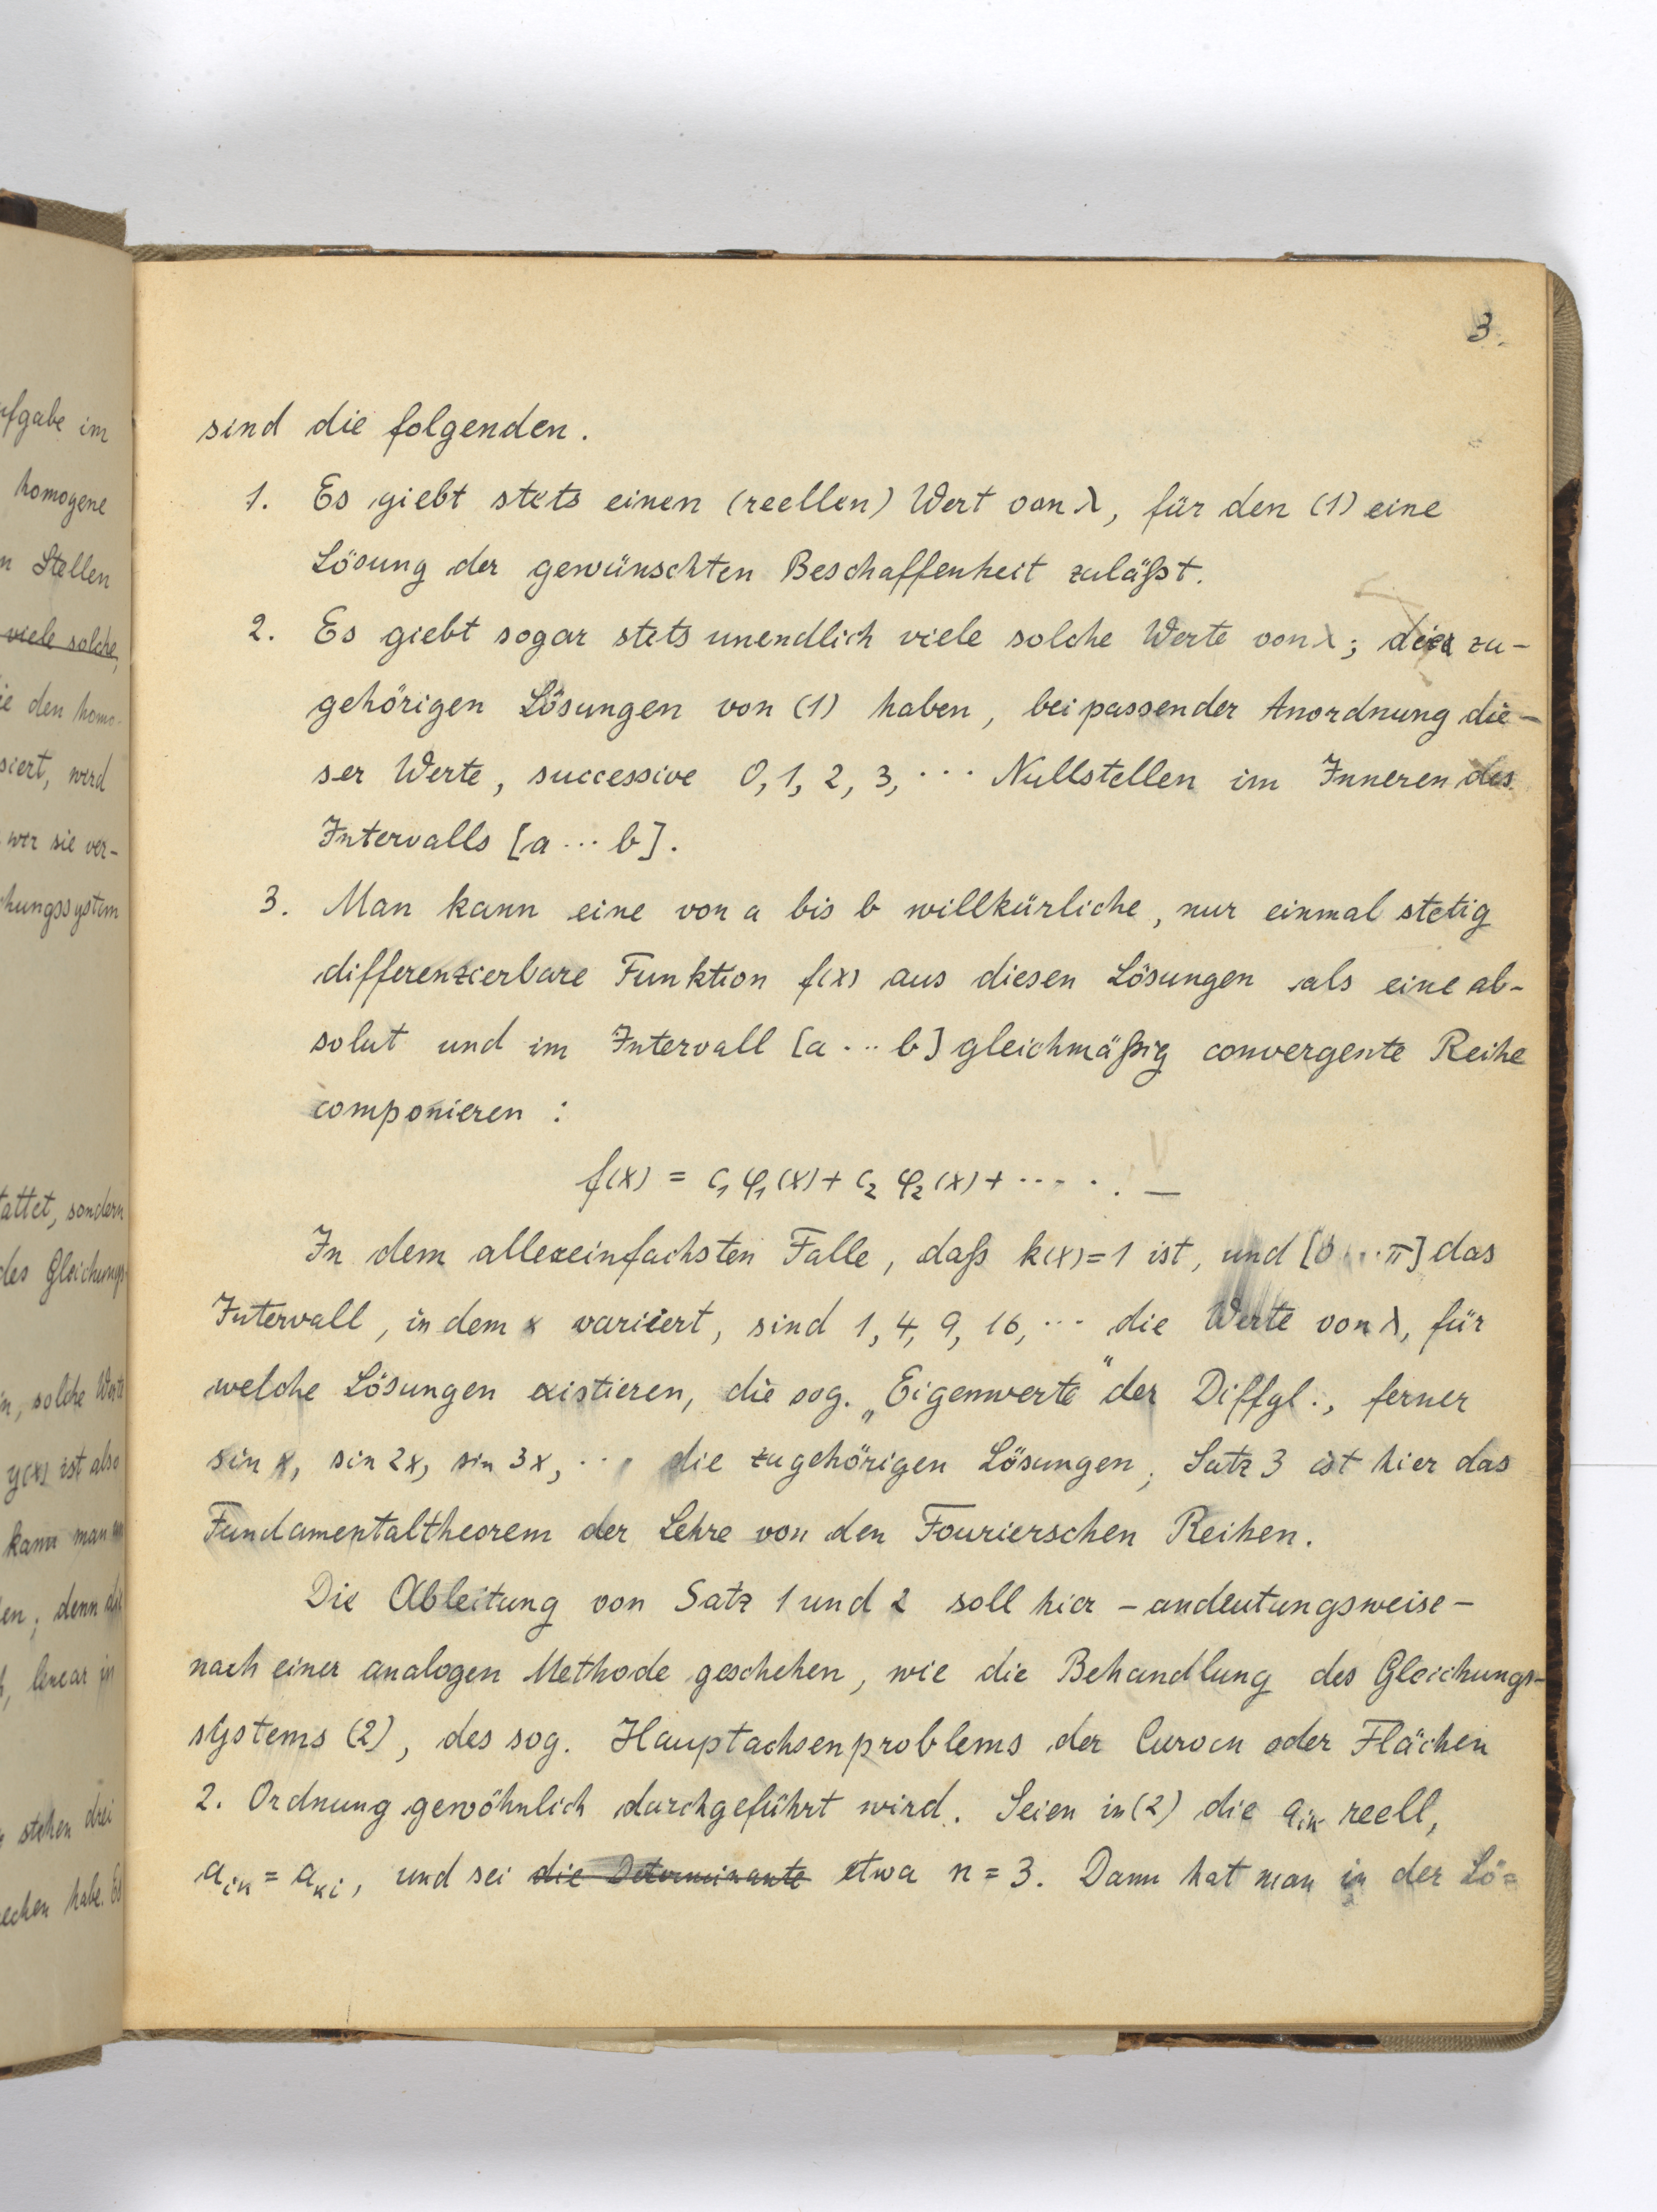 ufgabe im
homogene
n Stellen
viele solche,
ie den homo-
siert, wird
wir sie ver-
chungssystem
tattet, sondern
des Gleichungs-
n, solche Werte
y(x) ist also
kann man
en; denn
linear in
stehen drei
echen habe. Es
3.
sind die folgenden.
1. Es giebt stets einen (reellen) Wert von λ, für den (1) eine
Lösung der gewünschten Beschaffenheit zuläßt.
2. Es giebt sogar stets unendlich viele solche Werte von λ; die zu-
gehörigen Lösungen von (1) haben, bei passender Anordnung die-
ser Werte, successive 0, 1, 2, 3, ··· Nullstellen im Inneren des
Intervalls [a ··· b].
3. Man kann eine von a bis b willkürliche, nur einmal stetig
differenzierbare Funktion f(x) aus diesen Lösungen als eine ab-
solut und im Intervall [a ··· b] gleichmäßig convergente Reihe
componieren :
f(x) = c₁ φ₁(x) + c₂ φ₂(x) + ····· . —
In dem allereinfachsten Falle, daß k(x)=1 ist, und [0 ··· π] das
Intervall, in dem x variiert, sind 1, 4, 9, 16, ··· die Werte von λ, für
welche Lösungen existieren, die sog. „Eigenwerte" der Diffgl., ferner
sin x, sin 2x, sin 3x, ··· die zugehörigen Lösungen; Satz 3 ist hier das
Fundamentaltheorem der Lehre von den Fourierschen Reihen.
Die Ableitung von Satz 1 und 2 soll hier – andeutungsweise –
nach einer analogen Methode geschehen, wie die Behandlung des Gleichungs-
systems (2), des sog. Hauptachsenproblems der Curven oder Flächen
2. Ordnung gewöhnlich durchgeführt wird. Seien in (2) die aᵢₖ reell,
aᵢₖ = aₖᵢ, und sei die Determinante etwa n = 3. Dann hat man in der Lö=